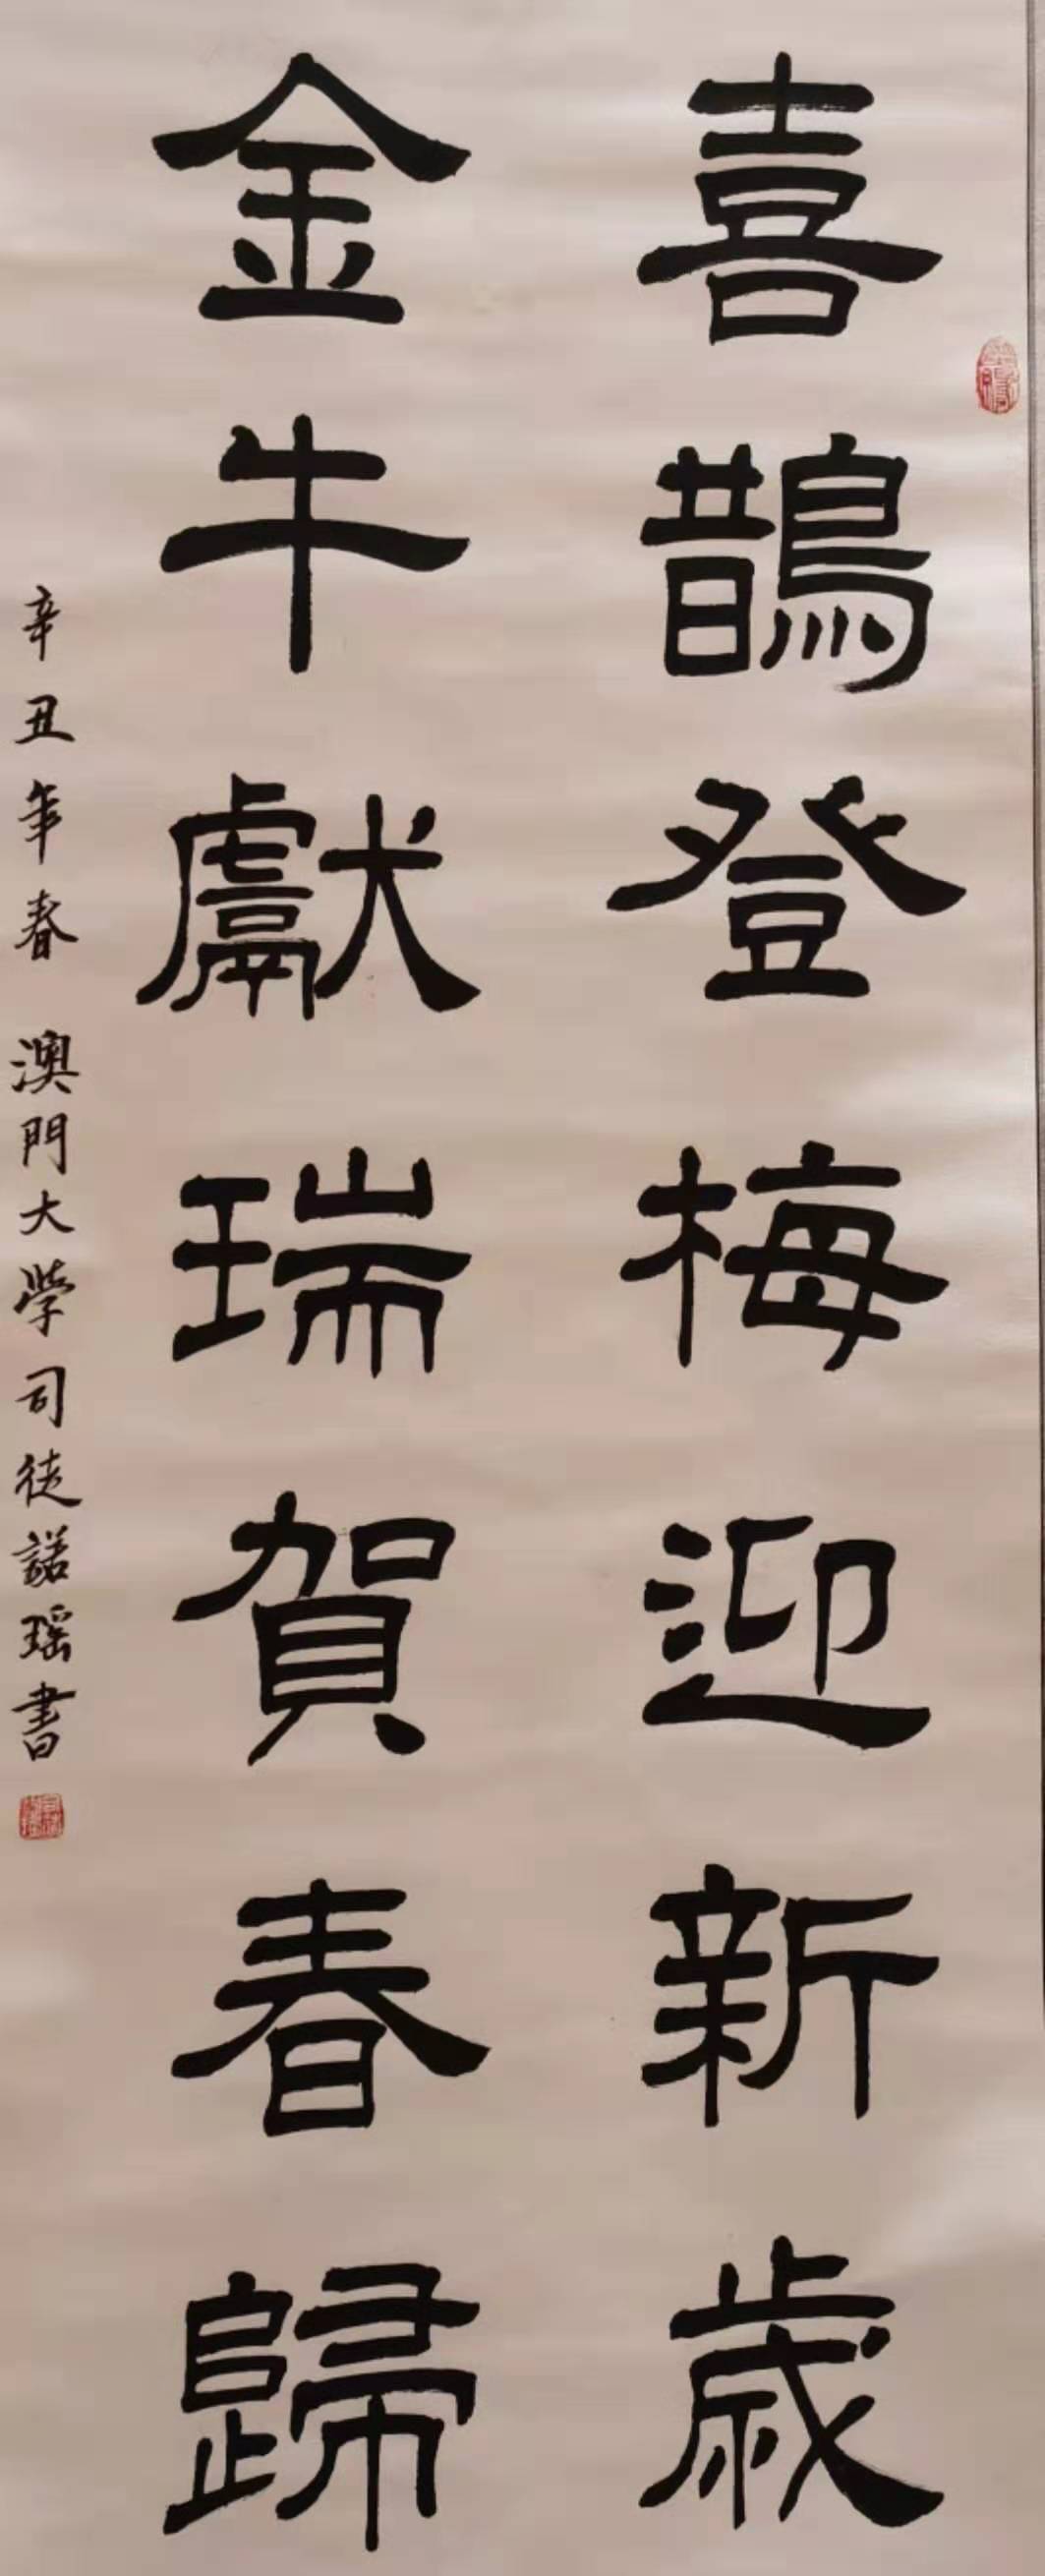 喜鵲登梅迎新歲
金牛獻瑞賀春歸
辛丑年春 澳門大學司徒諾瑶書